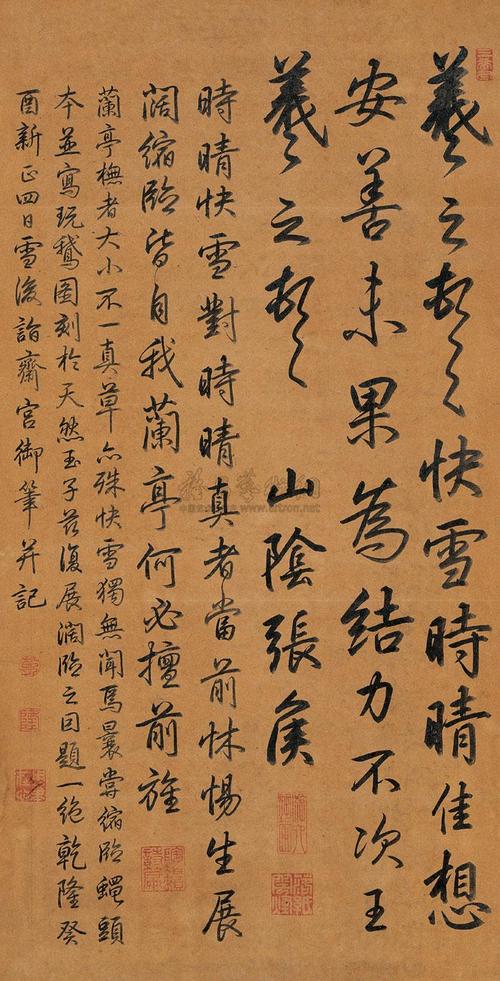 羲之頓首快雪時晴佳想
安善未果為結力不次王
羲之頓首 山陰張侯
時晴快雪對時晴真者當前怵惕生展
闊縮臨皆自我蘭亭何必擅前旌
蘭亭橅者大小不一真草亦殊快雪獨無聞焉曩嘗縮臨蠅頭
本並寫玩鵝圖刻於天然玉子茲復展濶臨之因題一絕乾隆癸
酉新正四日雪後詣齋宮御筆并記
artron.net